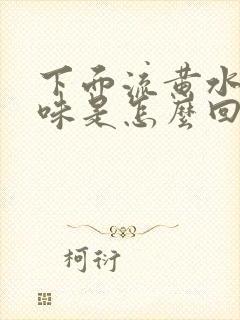 下面流黄水
味是怎麽回
柯衍